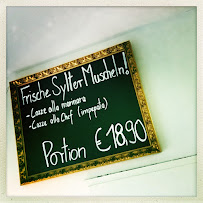 Frische Sylter Muscheln!
- Cozze alla marinara
- Cozze alla Chef (impepata)
Portion € 18,90